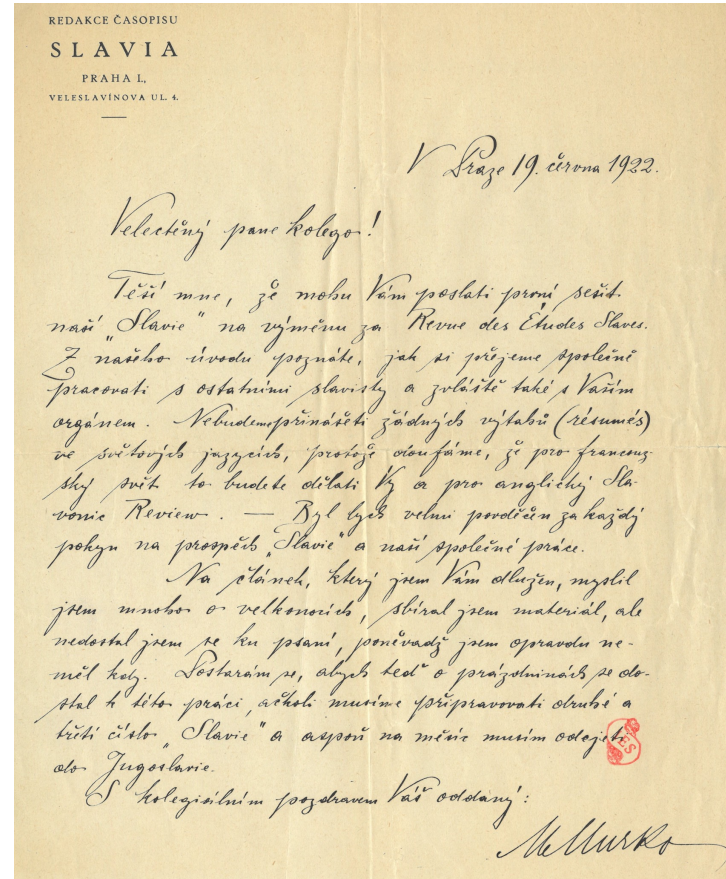 REDAKCE ČASOPISU
SLAVIA
PRAHA I,
VELESLAVÍNOVA UL. 4.
V Praze 19. června 1922.
Velectěný pane kolego!
Těší mne, že mohu Vám poslati první sešit
naší „Slavie" na výměnu za Revue des Études Slaves.
Z našeho úvodu poznáte, jak si přejeme společně
pracovati s ostatními slavisty a zvláště také s Vaším
orgánem. Nebudeme přinášeti žádných výtahů (résumés)
ve světových jazycích, protože doufáme, že pro francouz-
ský svět to budete dělati Vy a pro anglický Sla-
vonic Review. — Byl bych velmi povděčen za každý
pokyn na prospěch „Slavie" a naší společné práce.
Na článek, který jsem Vám dlužen, myslil
jsem mnoho o velkonocích, sbíral jsem materiál, ale
nedostal jsem se ku psaní, poněvadž jsem opravdu ne-
měl kdy. Postarám se, abych teď o prázdninách se do-
stal k této práci, ačkoli musíme připravovati druhé a
třetí číslo „Slavie" a aspoň na měsíc musím odejeti
do Jugoslavie.
S kolegiálním pozdravem Váš oddaný:
M Murko
IES